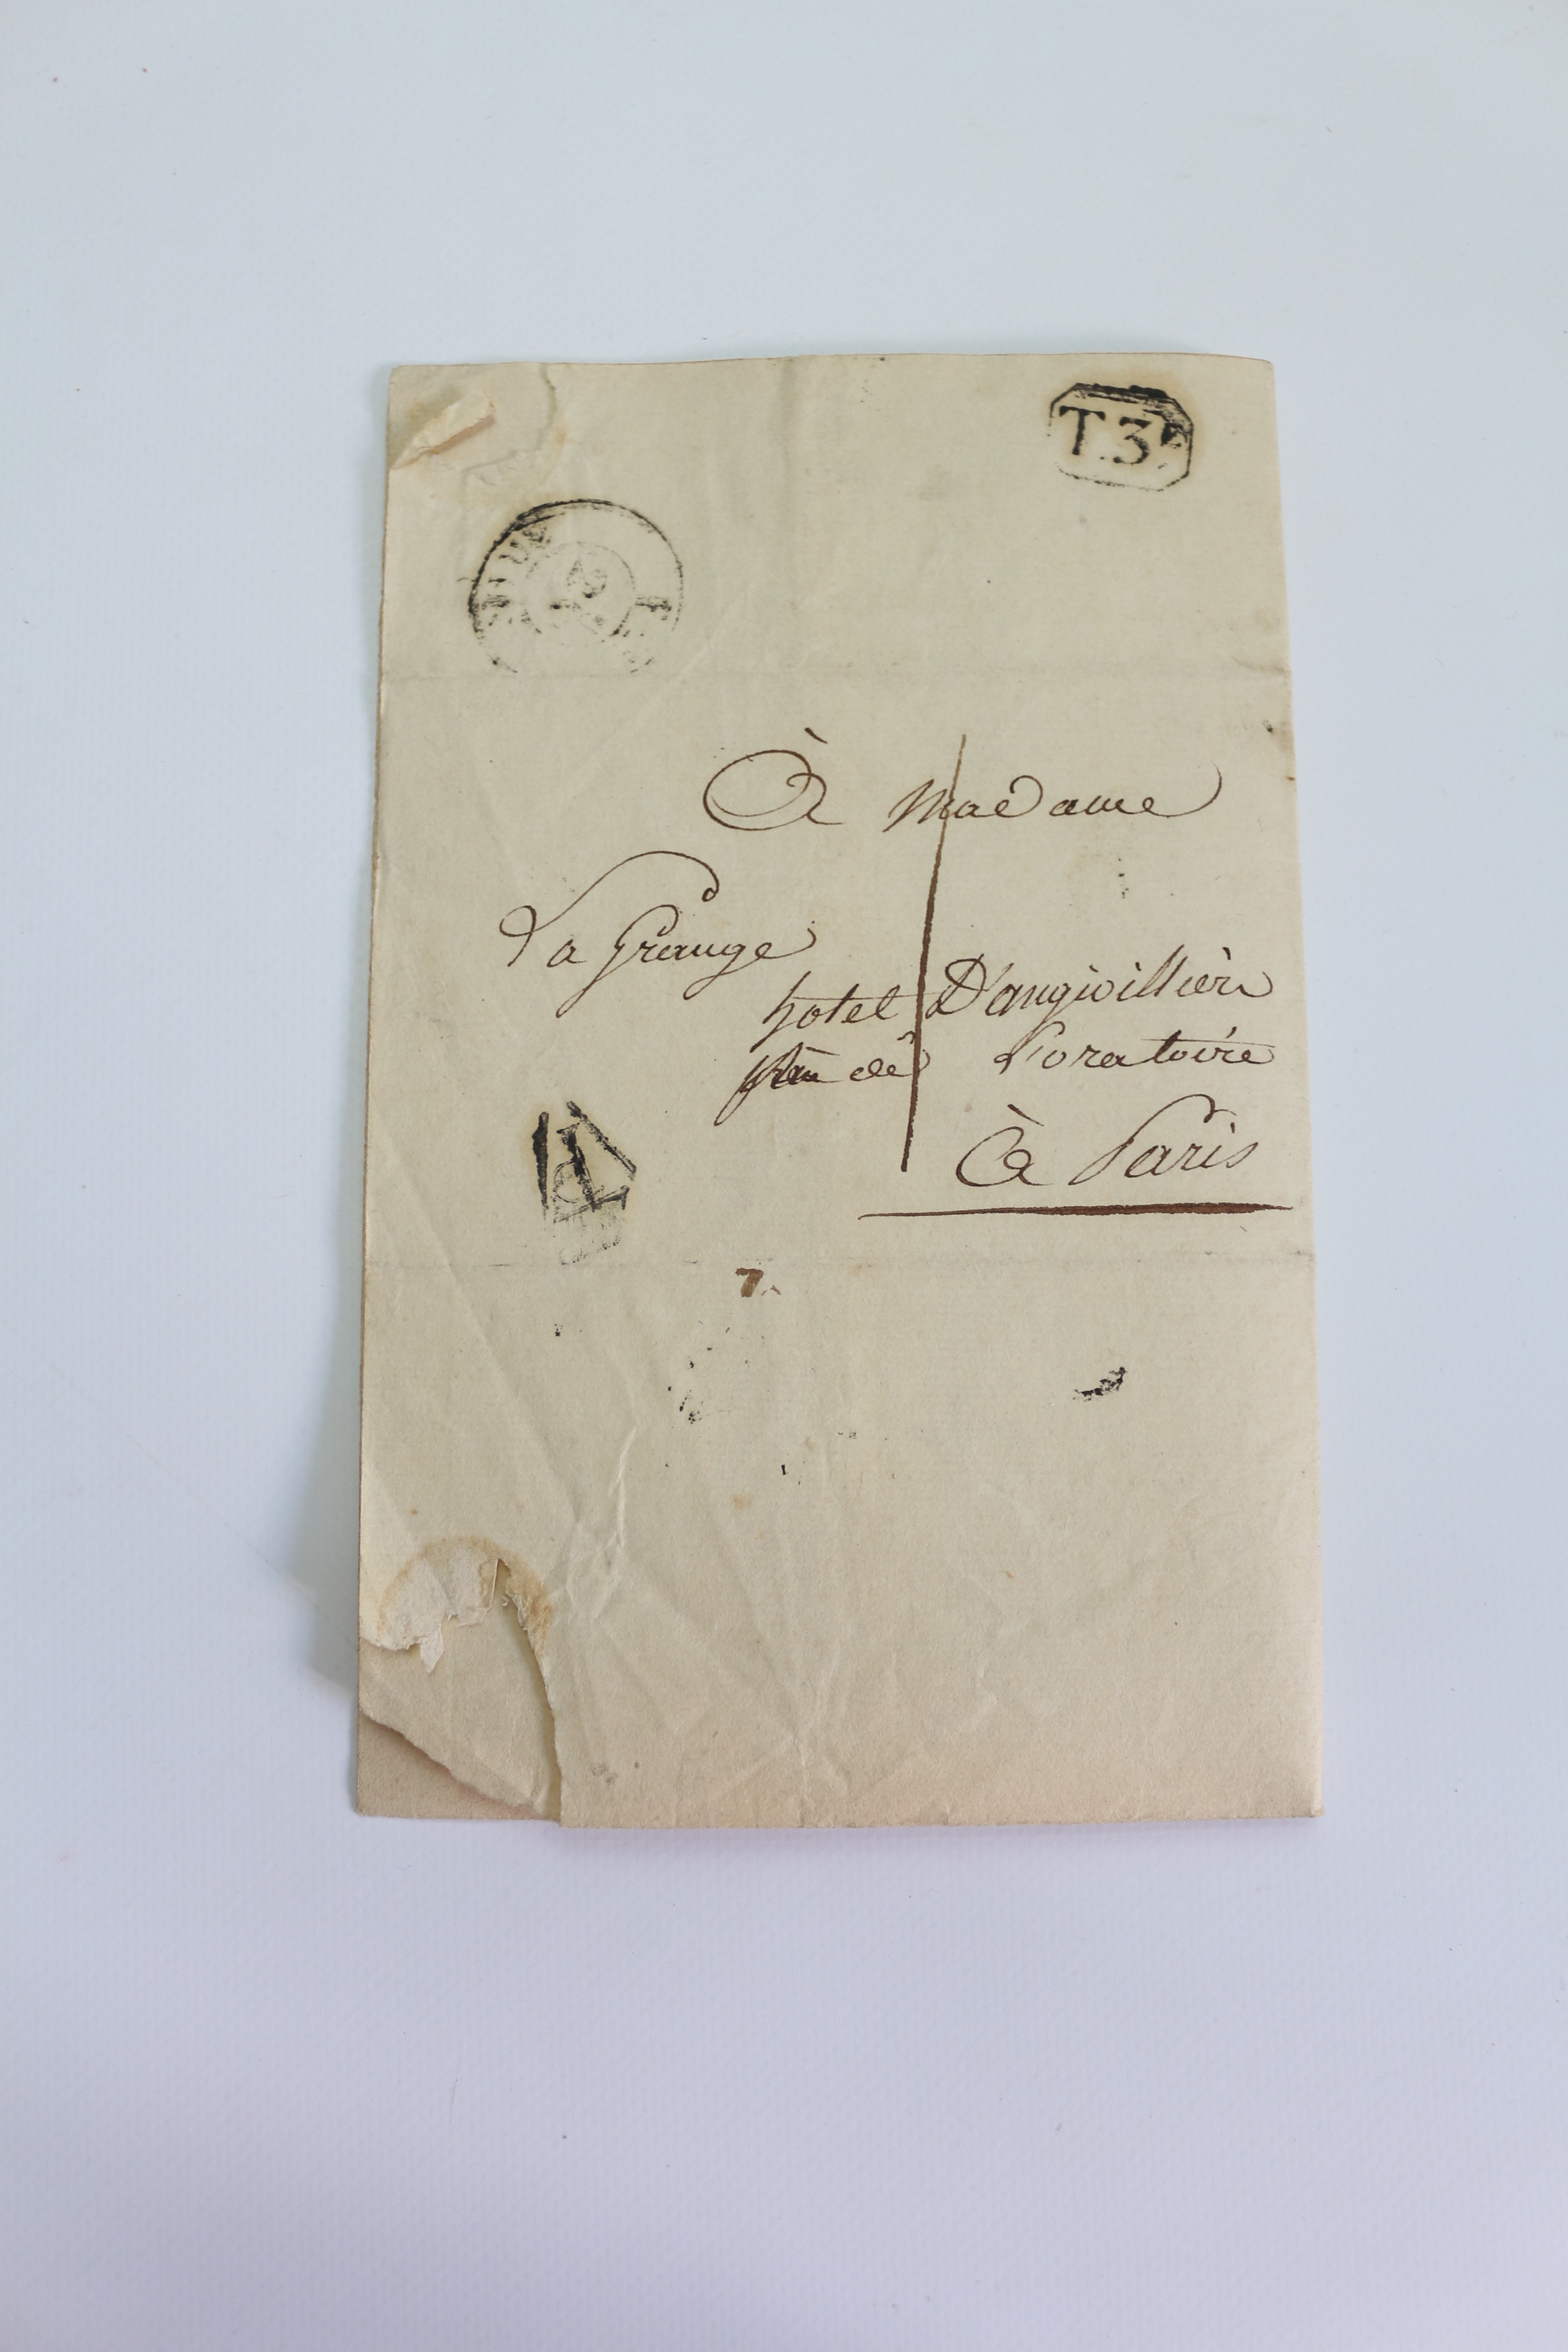 T.3
À Madame
La Grange
hotel D'angivillièr
de L'oratoire
À Paris
7